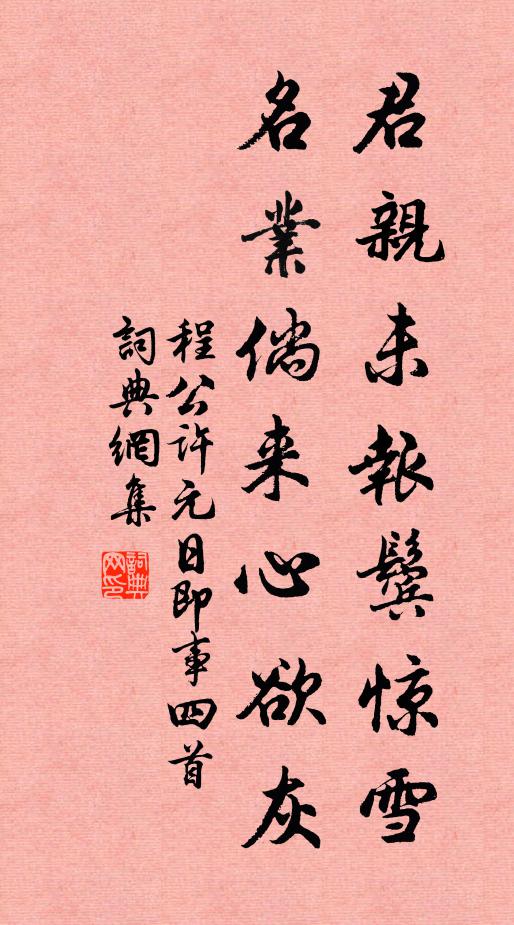 君親未報鬓惊雪
名業倘来心欲灰
程公许元日即事四首
詞典網集
詞典网印